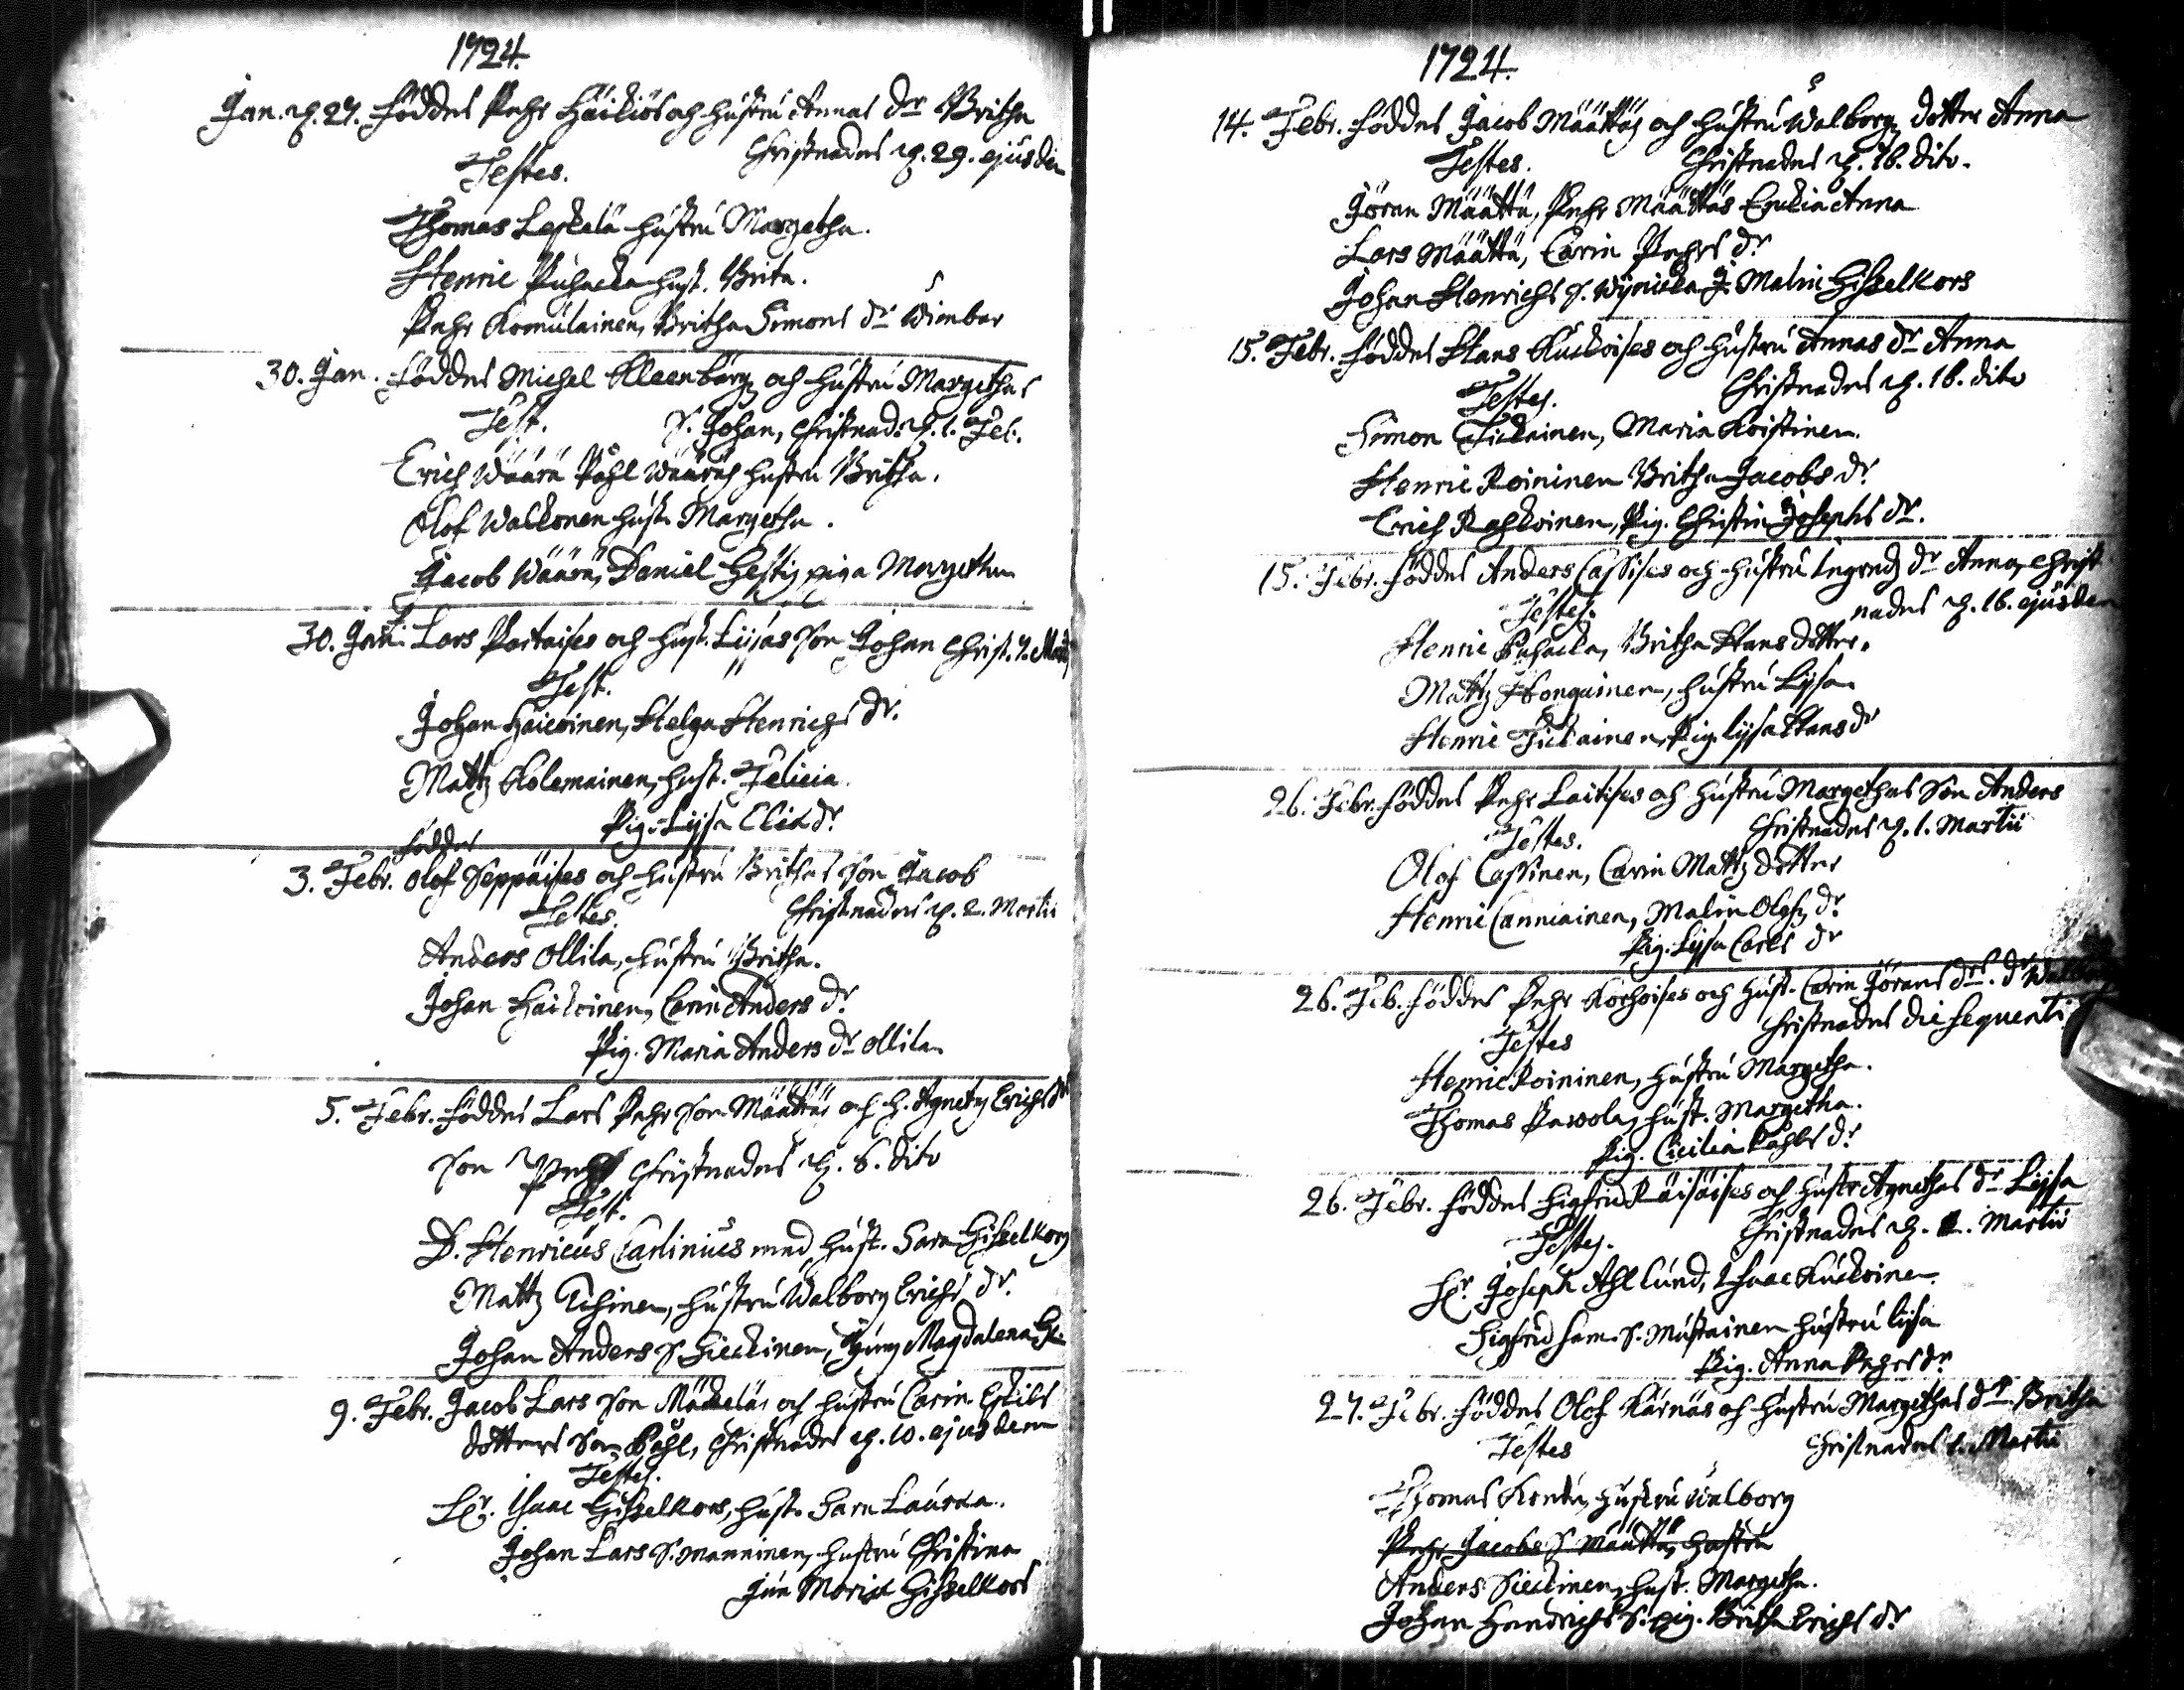 1724.
Jan. d. 27. föddes Pehr Häikiös och hustru Annas dr Britha
Testes. Christnades d. 29. ejusdem
Thomas Leskelä hustru Margetha.
Henric Puhacka hust. Brita.
Pehr Komulainen, Britha Simons dr Wimbar
30. Jan. föddes Michel Kleenbärg och hustru Margethas
Test. S. Johan, Christnad. d. 1. Feb.
Erich Wäärä Påhl Wääräs hustru Britha.
Olof Walkonen hust. Margetha.
Jacob Wäärä, Daniel Hestis piga Margetha
30. Jan. Lars Partaises och hust. Lijsas son Johan Christ.
Test.
Johan Häicoinen, Helga Henrichs dr.
Mattz Kolemainen, hust. Felicia.
Pig. Lijsa Elia dr.
föddes
3. Febr. Olof Seppäises och hustru Brithas son Jacob
Testes. Christnades d. 2. Martii
Anders Ollila, hustru Britha.
Johan Haikoinen, Carin Anders dr.
Pig. Maria Anders dr Ollila
5. Febr. föddes Lars Pehr son Määttäs och h. Agnetas Erichs dr
son Pehr Christnades d. 6. dito
Test.
D. Henricus Carlinius med hust. Sara Gisselkors
Mattz Tihinen, hustru Walborg Erichs dr.
Johan Anders S. Hieckinen, Jung. Magdalena
9. Febr. Jacob Lars son Mäckeläs och hustru Carin Eskils
dotters son Påhl, Christnades d. 10. ejusdem
Testes.
Hr. Isaac Gisselkors, hust. Sara Lauraa.
Johan Lars S. Manninen, hustru Christina
Jun Maria Gisselkors
1724.
14. Febr. föddes Jacob Määttäs och hustru Walborg dotter Anna
Testes. Christnades d. 16. dito.
Jöran Määttä, Pehr Määttäs Enkia Anna
Lars Määttä, Carin Pehrs dr
Johan Henrichs S. Wynicka J. Malin Gisselkors
15. Febr. föddes Hans Kuckoises och hustru Annas dr Anna
Testes. Christnades d. 16. dito
Simon Tickainen, Maria Koistinen.
Henric Roininen Britha Jacobs dr.
Erich Raskoinen, Pig. Christin Josephs dr.
15. Febr. föddes Anders Cassises och hustru Ingredz dr Anna, Christ
Testes. nades d. 16. ejusdem
Henric Puhacka, Britha Hans dotter.
Mattz Hongainen, hustru Lijsa
Henric Tickainen, Pig. Lijsa Hans dr
26. Febr. föddes Pehr Laitises och hustru Margethas son Anders
Testes. Christnades d. 1. Martii
Olof Cassinen, Carin Mattz dotter
Henric Canniainen, Malin Olofz dr.
Pig. Lijsa Carls dr
26. Feb. föddes Pehr Korhoises och hust. Carin Jörans drs. dr Walborg
Testes Christnades die sequenti
Henric Roininen, hustru Margetha.
Thomas Pawola, hust. Margetha.
Pig. Cicilia Påhls dr.
26. Febr. föddes Sigfrid Räisäises och hustr Agnethas dr Lijsa
Testes. Christnades d. Martii
Hr. Joseph Ahllund, Isaac Kuckoinen.
Sigfrid Sam. S. Mustainen hustru Lisa
Pig. Anna Pehrs dr.
27. Febr. föddes Olof Kärnäs och hustru Margethas dr. Britha
Testes Christnades 1. Martii
Thomas Kontu, hustru Walborg
Pehr Jacobs S. Määttä, hustru
Anders Hieckinen, hust. Margetha.
Johan Handrichs S. pig. Britha Erichs dr.